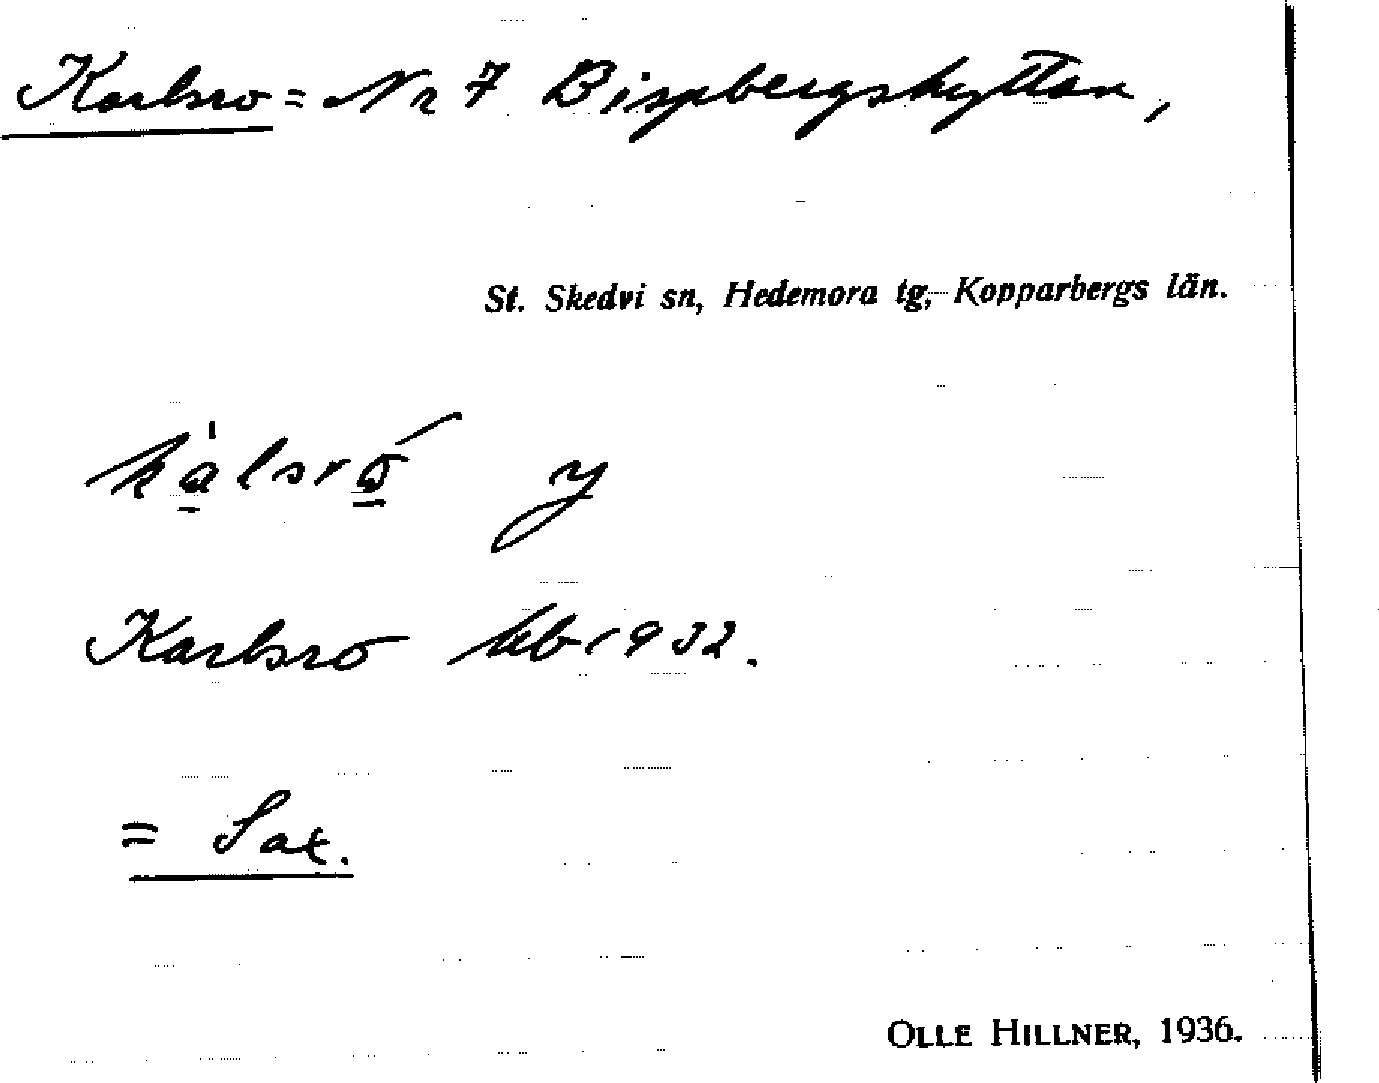 Karlsro = Nr 7 Bispbergshyttan,
St. Skedvi sn, Hedemora tg, Kopparbergs län.
kàlsró y
Karlsro kb 1932.
= Sax.
OLLE HILLNER, 1936.